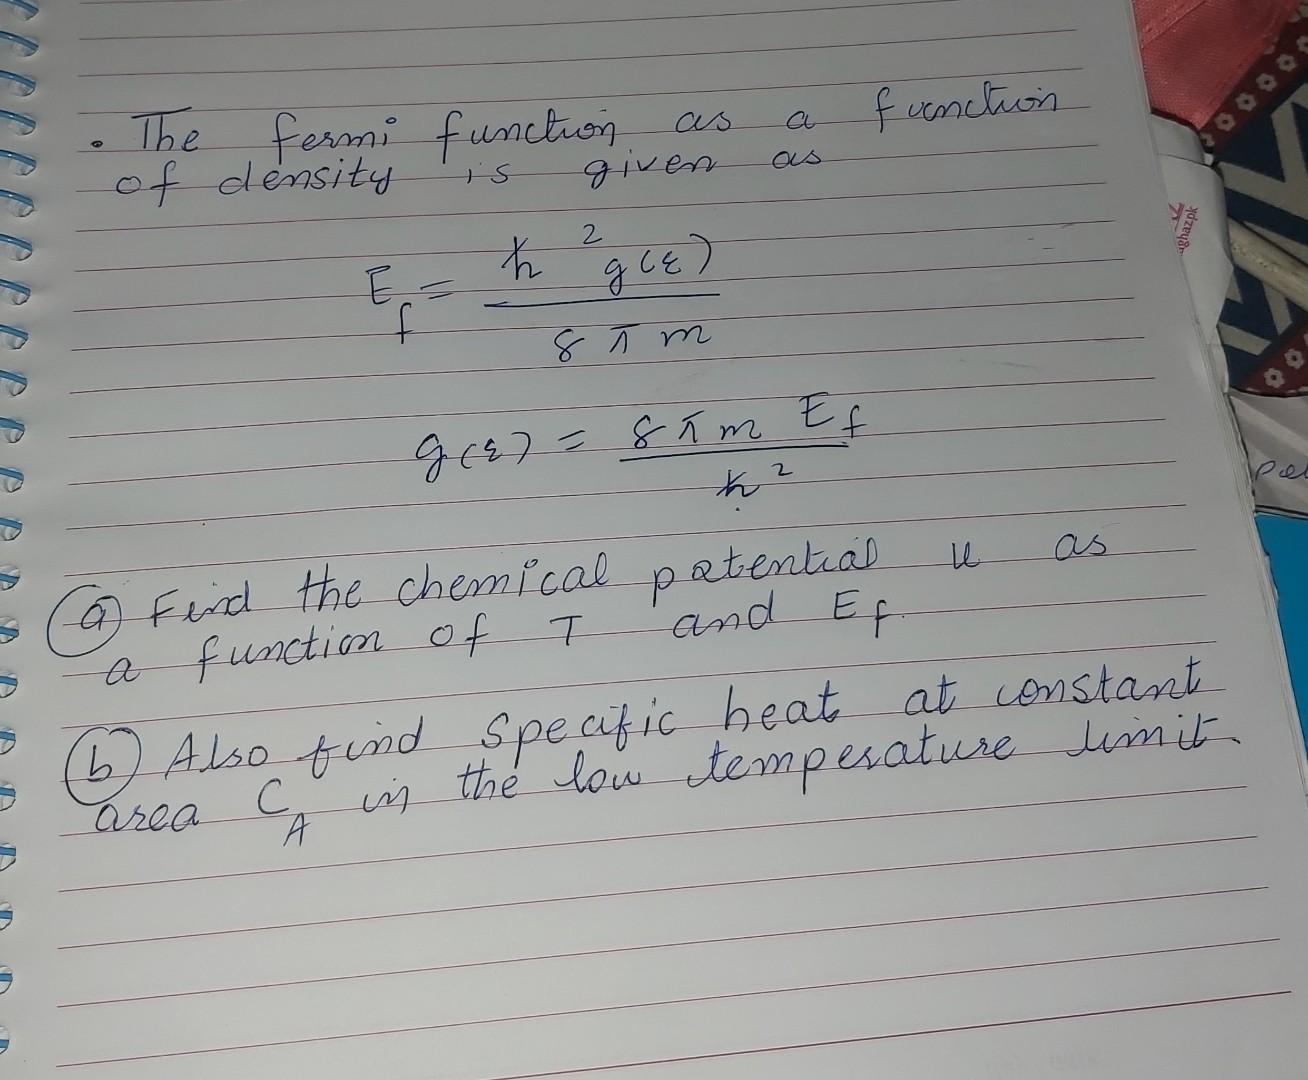 • The fermi function as a function
of density is given as
E_f = ħ² g(ε) / 8πm
g(ε) = 8πm E_f / ħ²
(a) Find the chemical potential u as
a function of T and E_f.
(b) Also find specific heat at constant
area C_A in the low temperature limit.
ghazpk